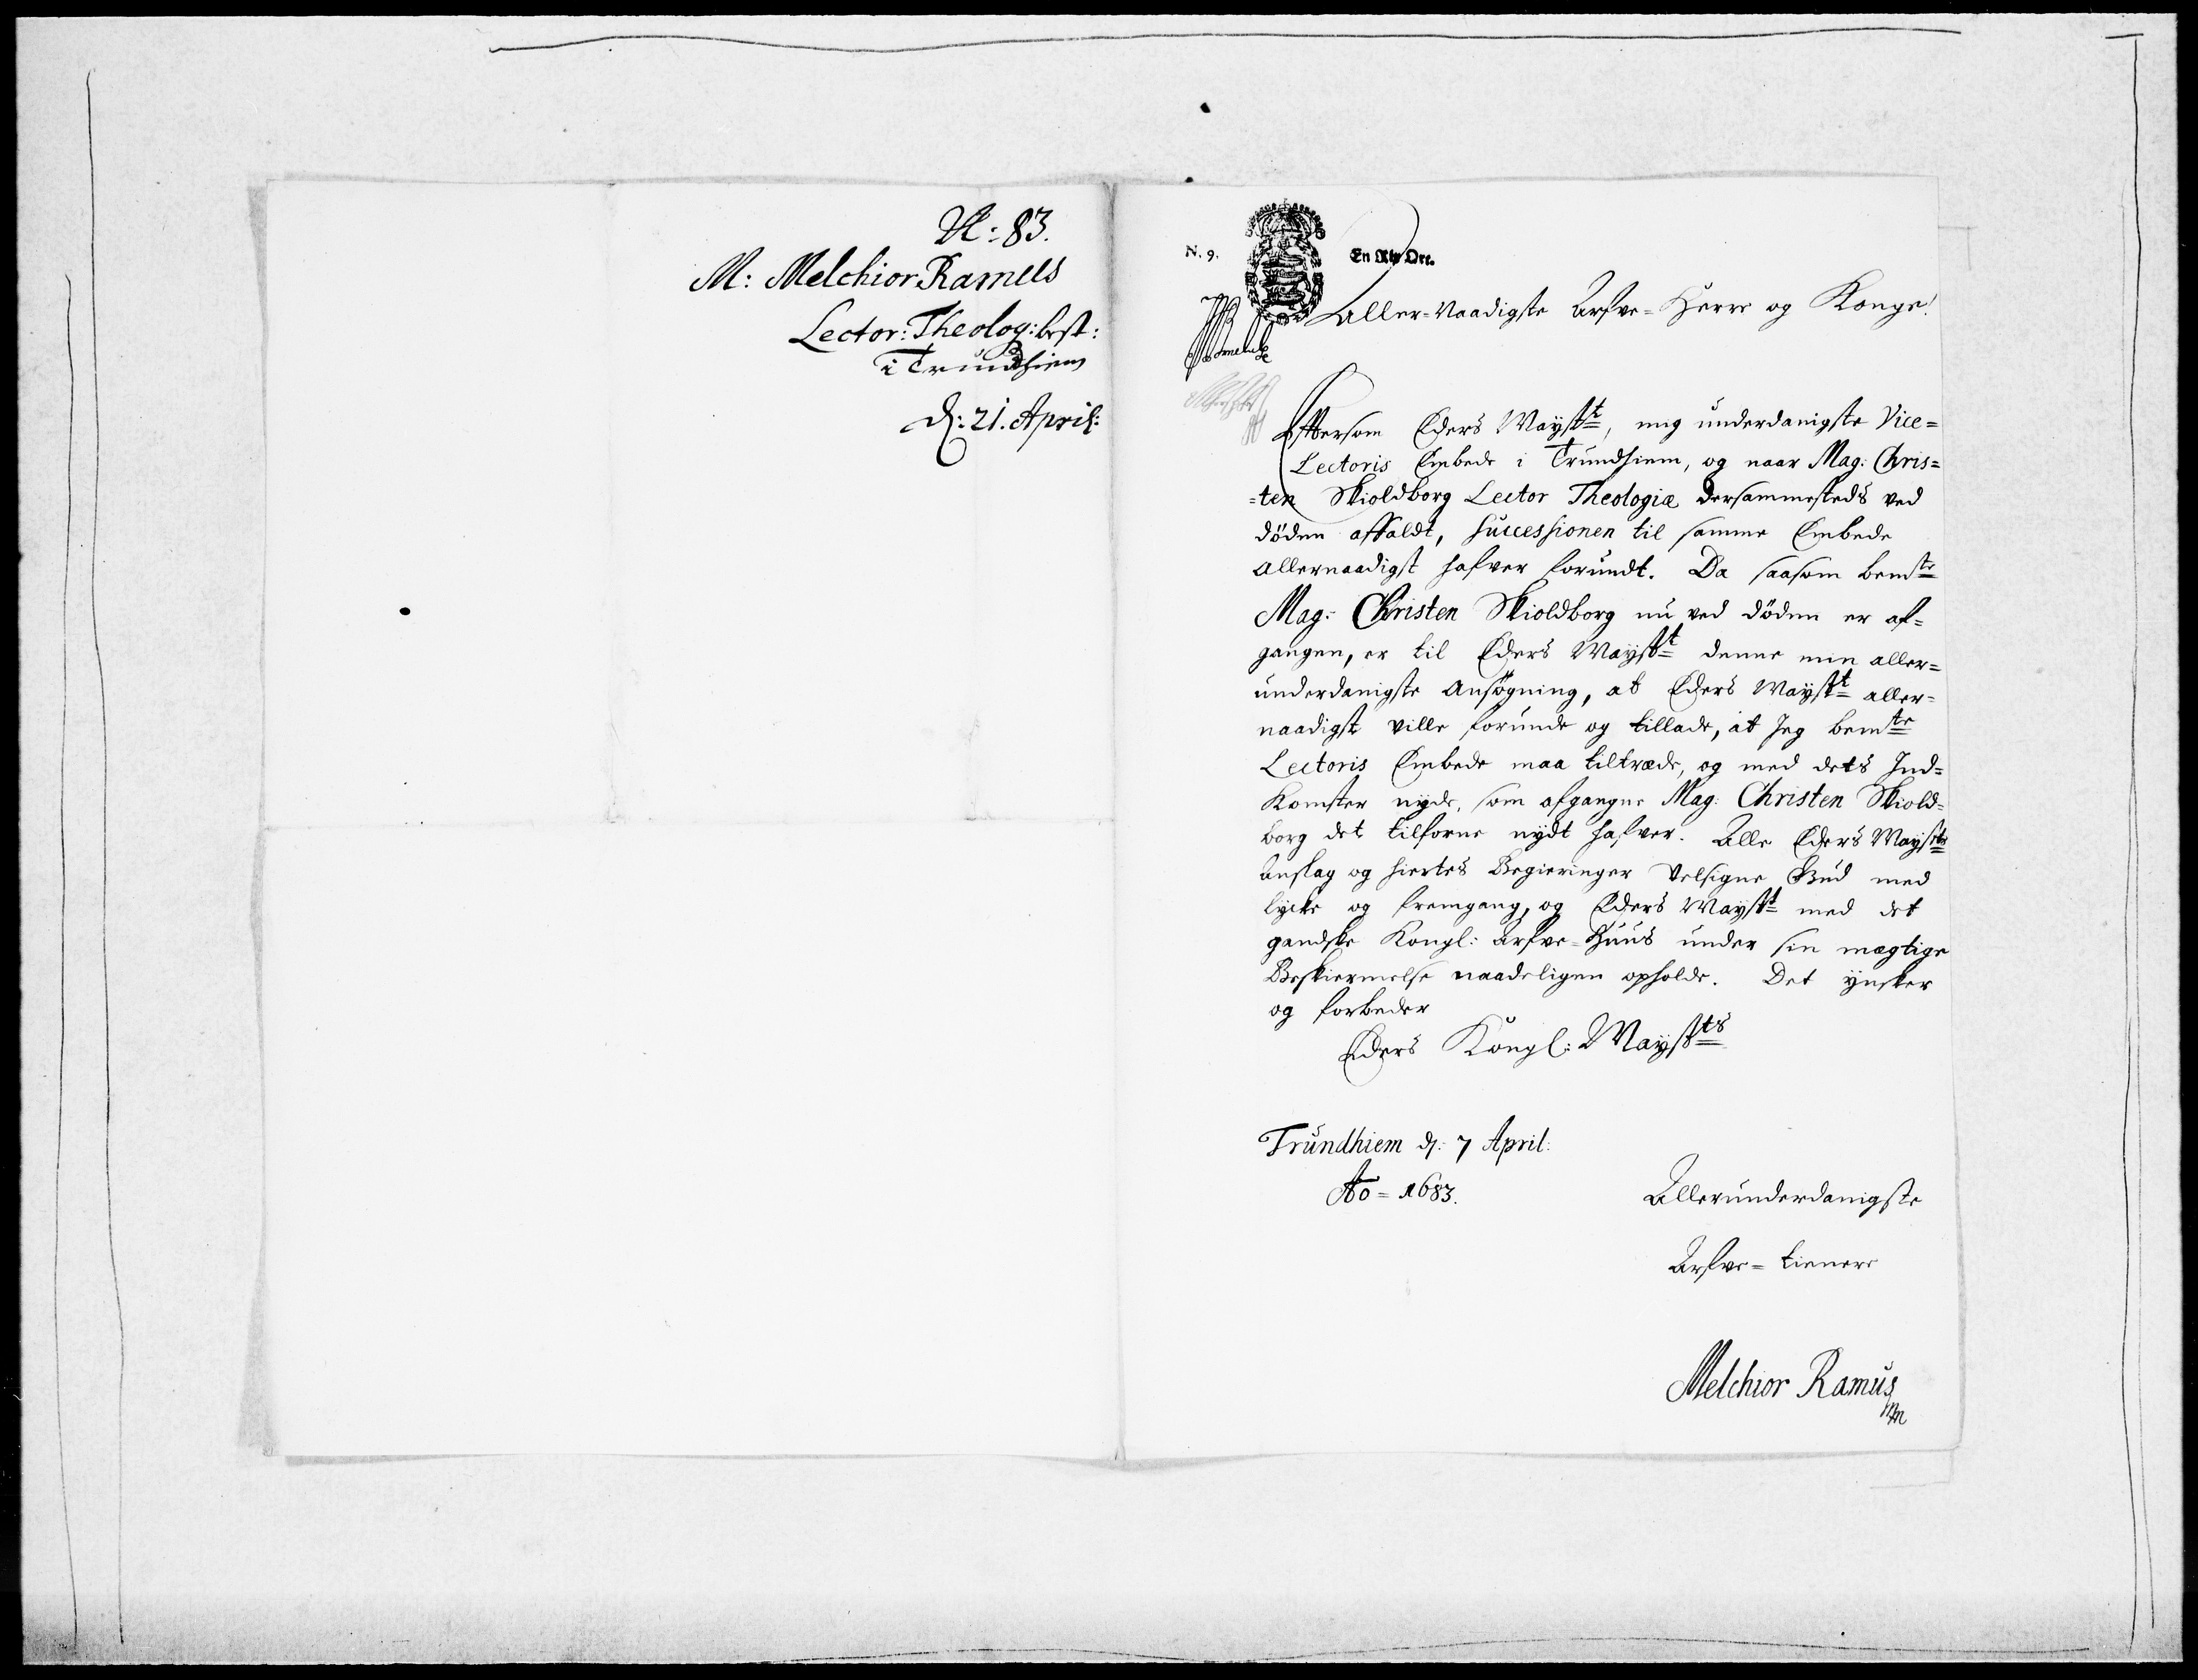 N: 83.
M: Melchior Ramus
Lector: Theolog: best:
i Trundhiem
d: 21. April:
N. 9.
En Ort.
Aller-Naadigste Arfve-Herre og Konge!
Eftersom Eders Mayst:t, mig underdanigste Vice=
Lectoris Embede i Trundhiem, og naar Mag: Chris=
=ten Skioldborg Lector Theologiæ dersammesteds ved
döden affaldt, Successionen til samme Embede
allernaadigst hafver forundt. Da saasom bem:te
Mag: Christen Skioldborg nu ved döden er af=
gangen, er til Eders Mayst:t denne min aller=
underdanigste Ansøgning, at Eders Mayst:t aller=
naadigst ville forunde og tillade, at Jeg bem:te
Lectoris Embede maa tiltræde, og med dets Ind=
Komster nyde, som afgangne Mag: Christen Skiold=
borg det tilforne nydt hafver. Alle Eders Mayst:ts
Anslag og hiertes Begieringer Velsigne Gud med
lycke og fremgang, og Eders Mayst:t med det
gandske Kongl: Arfve-Huus under sin mægtige
Beskiermelse naadeligen opholde. Det ynsker
og forbeder
Eders Kongl: Mayst:ts
Trundhiem d: 7 April:
Ao = 1683.
Allerunderdanigste
Arfve=tienere
Melchior Ramus